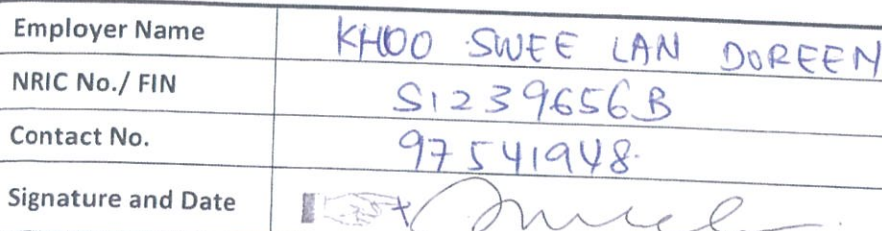 Employer Name KHOO SWEE LAN DOREEN
NRIC No./ FIN S1239656B
Contact No. 97541948
Signature and Date